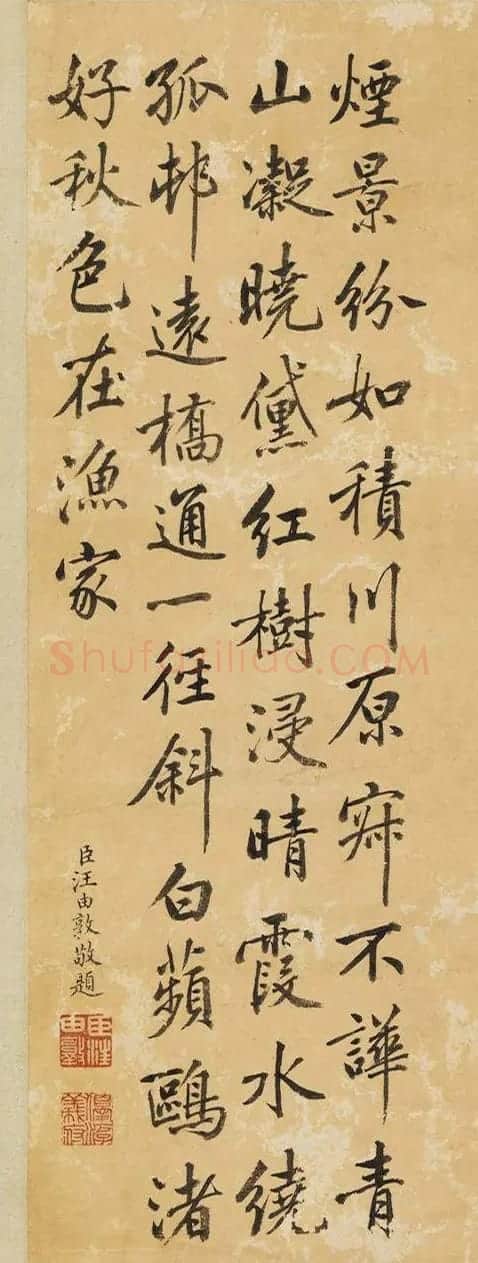 煙景紛如積川原寂不譁青
山凝曉黛紅樹浸晴霞水繞
孤邨遠橋通一徑斜白蘋鷗渚
好秋色在漁家
臣汪由敦敬題